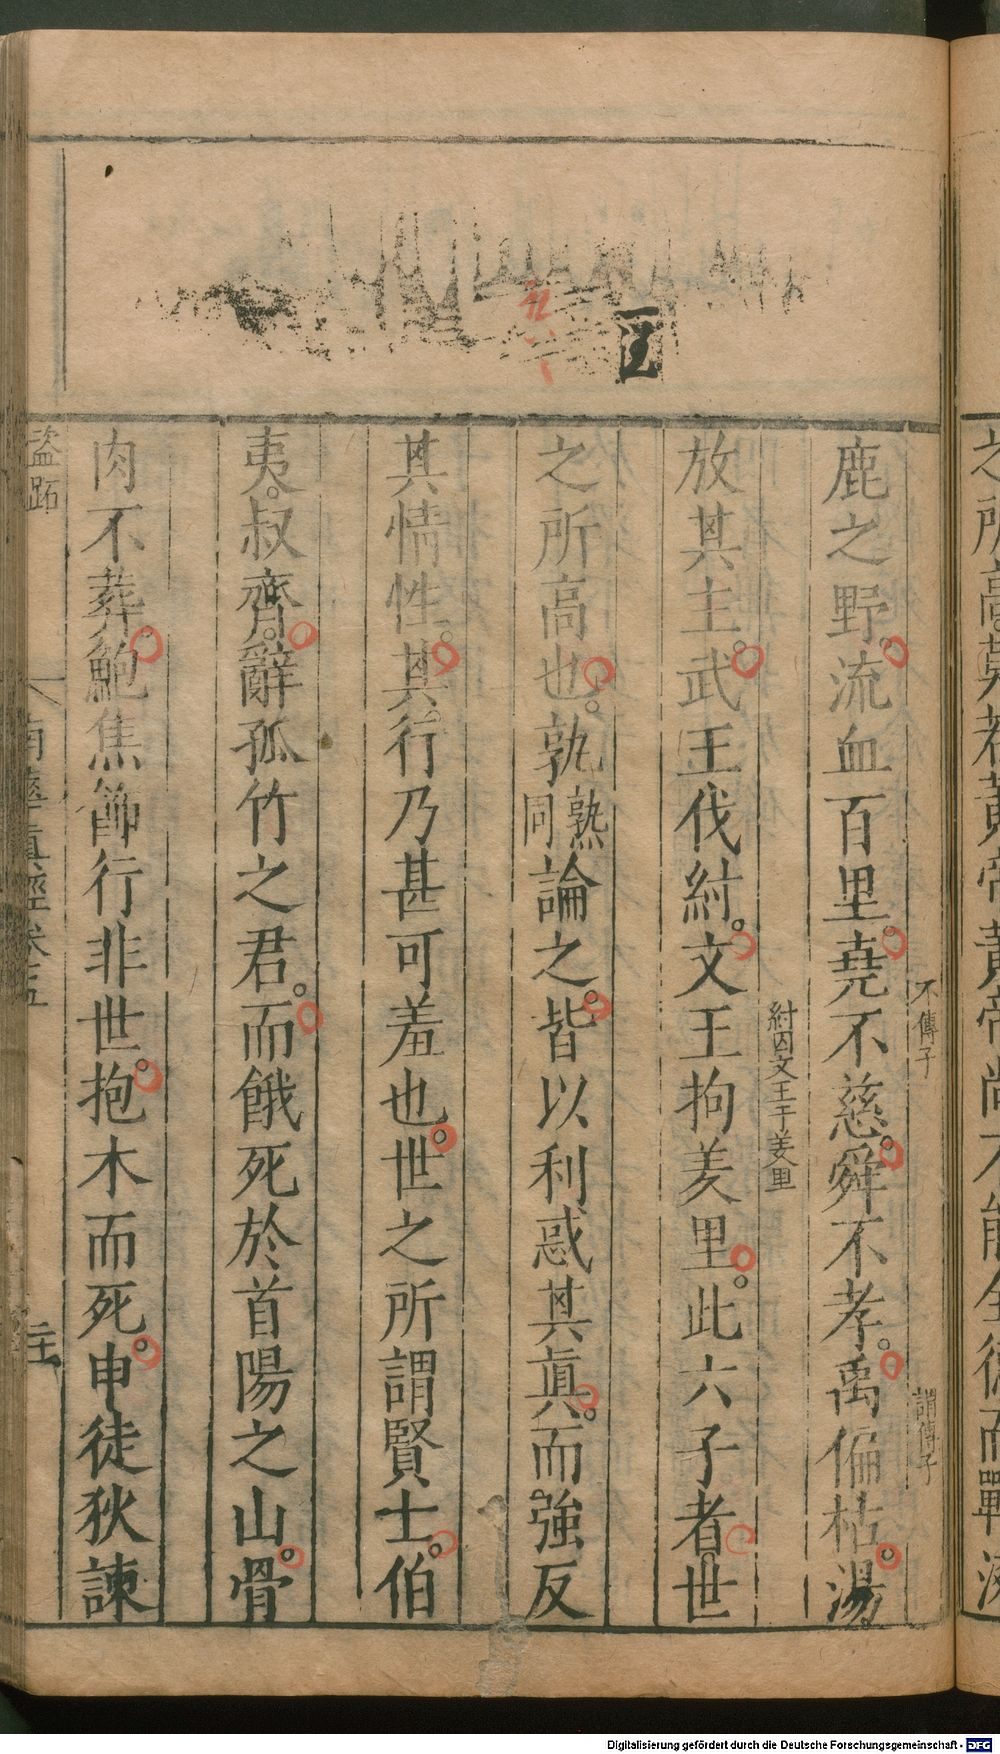 之所高莫若黃帝黃帝尚不能全德而戰涿
不傳子
謂傳子
鹿之野。流血百里。堯不慈。舜不孝。禹偏枯。湯
紂囚文王于羑里
放其主。武王伐紂。文王拘羑里。此六子者世
之所高也。孰熟同論之。皆以利惑其眞。而強反
其情性。其行乃甚可羞也。世之所謂賢士。伯
夷。叔齊。辭孤竹之君。而餓死於首陽之山。骨
肉不葬。鮑焦飾行非世。抱木而死。申徒狄諫
盜跖
南華眞經卷五
Digitalisierung gefördert durch die Deutsche Forschungsgemeinschaft - DFG